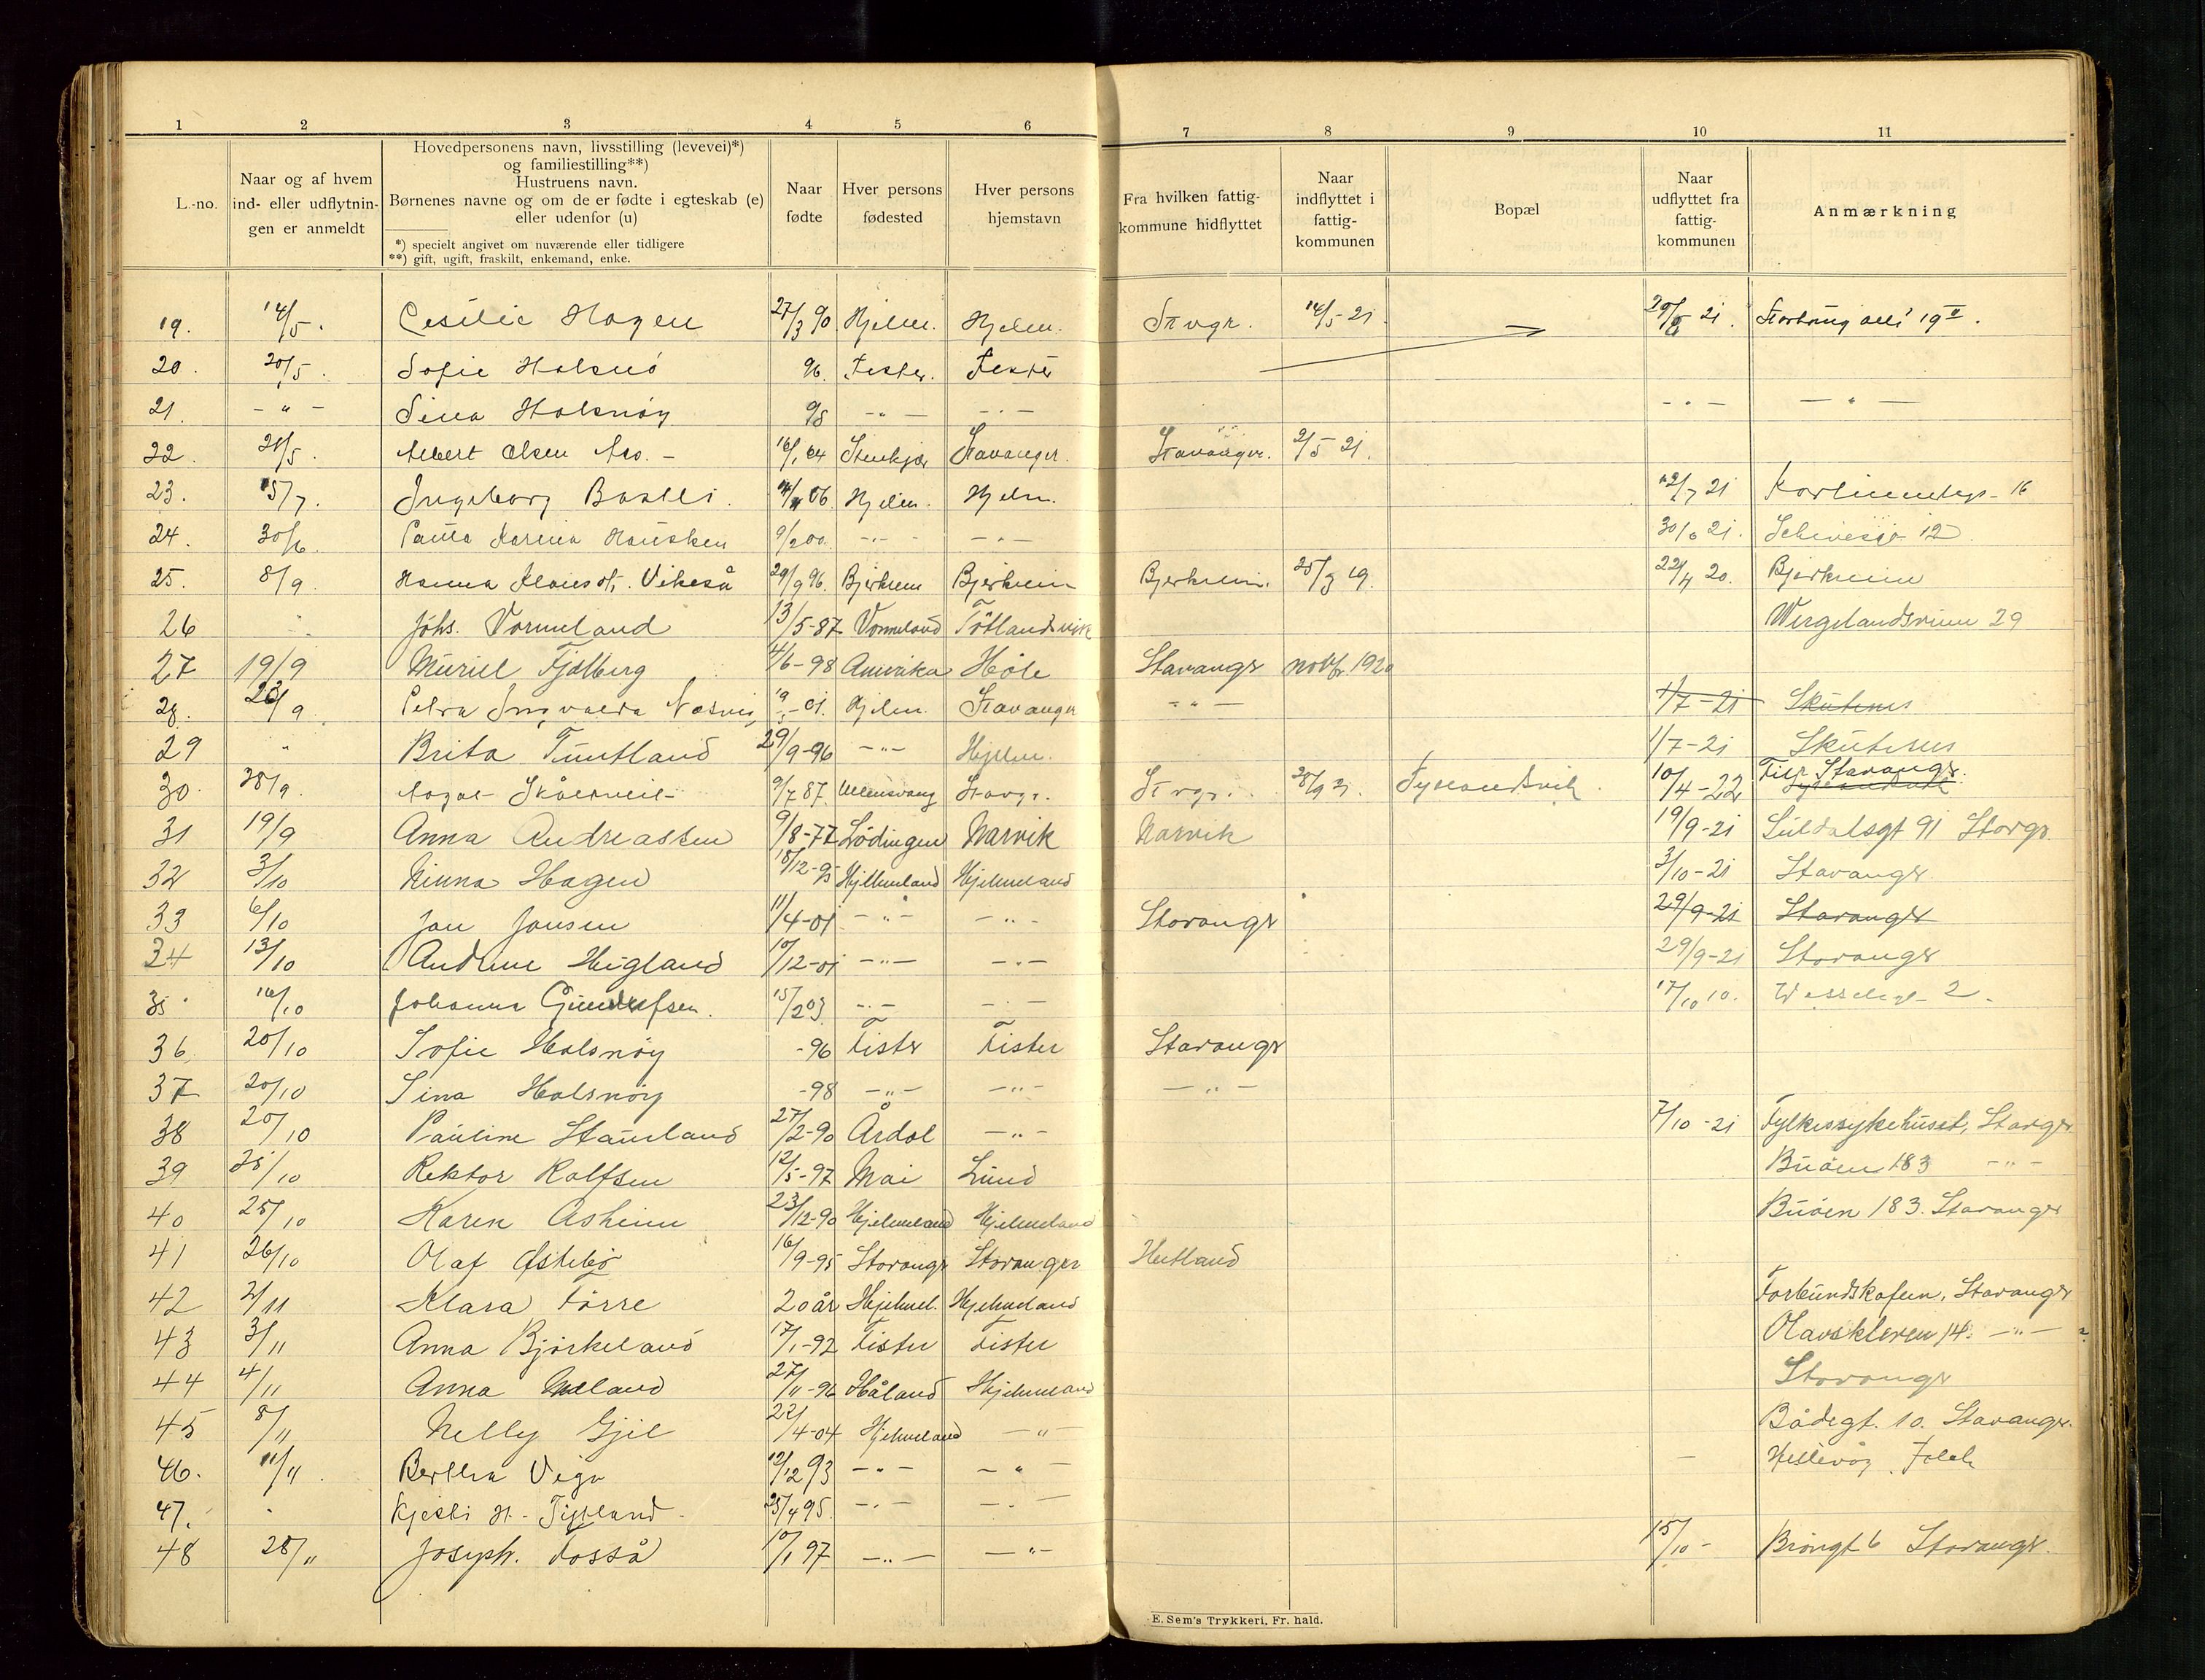 1 2 3 4 5 6 7 8 9 10 11
L.-no.
Naar og af hvem
ind- eller udflytnin-
gen er anmeldt
Hovedpersonens navn, livsstilling (levevei)*)
og familiestilling**)
Hustruens navn.
Børnenes navne og om de er fødte i egteskab (e)
eller udenfor (u)
*) specielt angivet om nuværende eller tidligere
**) gift, ugift, fraskilt, enkemand, enke.
Naar
fødte
Hver persons
fødested
Hver persons
hjemstavn
Fra hvilken fattig-
kommune hidflyttet
Naar
indflyttet i
fattig-
kommunen
Bopæl
Naar
udflyttet fra
fattig-
kommunen
Anmærkning
19. 14/5. Cesilie Hagen 27/3 90 Hjelm. Hjelm. Stvgr. 14/5-21. 21.
20. 20/5. Sofie Halsnö 96. Fister. Fister
21. - " - Sina Halsnöy 98 - " - - " - - " - - " -
22. 21/5. Albert Olsen 16/1 04 Stenkjær Stavanger. Stavanger. 2/5 21.
23. 15/7. Ingeborg 06. Hjelm. Hjelm. 12/7 21 16
24. 30/6. Paula Karina Hausken 9/2 00. - " - - " - 30/6 21. 12.
25. 8/9. Hanna Vikeså 29/9 96. Bjerkreim Bjerkreim Bjerkreim. 25/3 19. 22/4 20. Bjerkreim
26 " Johs. Vormeland 13/5-87 Vormeland Töttlandsvik Wergelandsveien 29
27 19/9 Muriel Fjelberg 4/6-98 Amerika Höle Stavangr novbr. 1920
28. 26/9 Petra Ingvalda 01. Hjelm. Stavanger - " - 1/7-21 Skutenes
29 " Brita Tuntland 29/9-96 - " - Hjelm. 1/7-21 Skutenes
30. 28/9. Aagot 9/7 87. Ullensvang Stavgr. Stvgr. 28/9 21. 10/4-22 Stavangr.
31 19/9 Anna Andreassen 9/8-77 Lödingen Narvik Narvik 19/9-21 Suldalsgt 91 Stavgr.
32 3/10 Minna Hagen 18/12-95 Hjelmeland Hjelmeland 3/10-21 Stavanger
33 6/10 Jan Jansen 11/4-01 - " - - " - Stavangr 29/9-21 Stavanger
34 13/10 Andrine Högland 10/12-01 - " - - " - 29/9-21 Stavangr
35. 16/10 Johanna Gundersen. 15/2 03. - " - - " - 17/10 10. Wesselsgt 2.
36 20/10 Sofie Halsnöy -96 Fister Fister Stavangr
37 20/10 Sina Halsnöy -98 - " - - " - - " -
38 20/10 Pauline Stauland 27/2-90 Årdal - " - 7/10-21 Fylkessykehuset, Stavgr
39 25/10 Rektor Rolfsen 12/5-97 Moi Lund Buöen 183 - " -
40 25/10 Karen Åsheim 23/12-90 Hjelmeland Hjelmeland Buöen 183. Stavanger
41 26/10 Olaf Østebø 16/9-95 Stavangr Stavanger Hetland
42 2/11 Klara Förre 20 år Hjelmel. Hjelmeland Forbundskafeen, Stavangr
43 3/11 Anna Björkeland 17/1-92 Fister Fister Olavskleven 14. - " -
44 4/11 Anna Meland 27/11-96 Håland Hjelmeland Stavangr
45 8/11 Nelly Gjil 22/4-04 Hjelmeland - " Bådegt. 10. Stavanger.
46. 11/11. Bertha Viga 12/12 93 - " - - " - -
47. " 25/4 95. - " - - " -
48 28/11 Joseph. Fosså 10/1 97 - " - - " - 15/10- 6 Stavangr.
E. Sem's Trykkeri, Fr. hald.